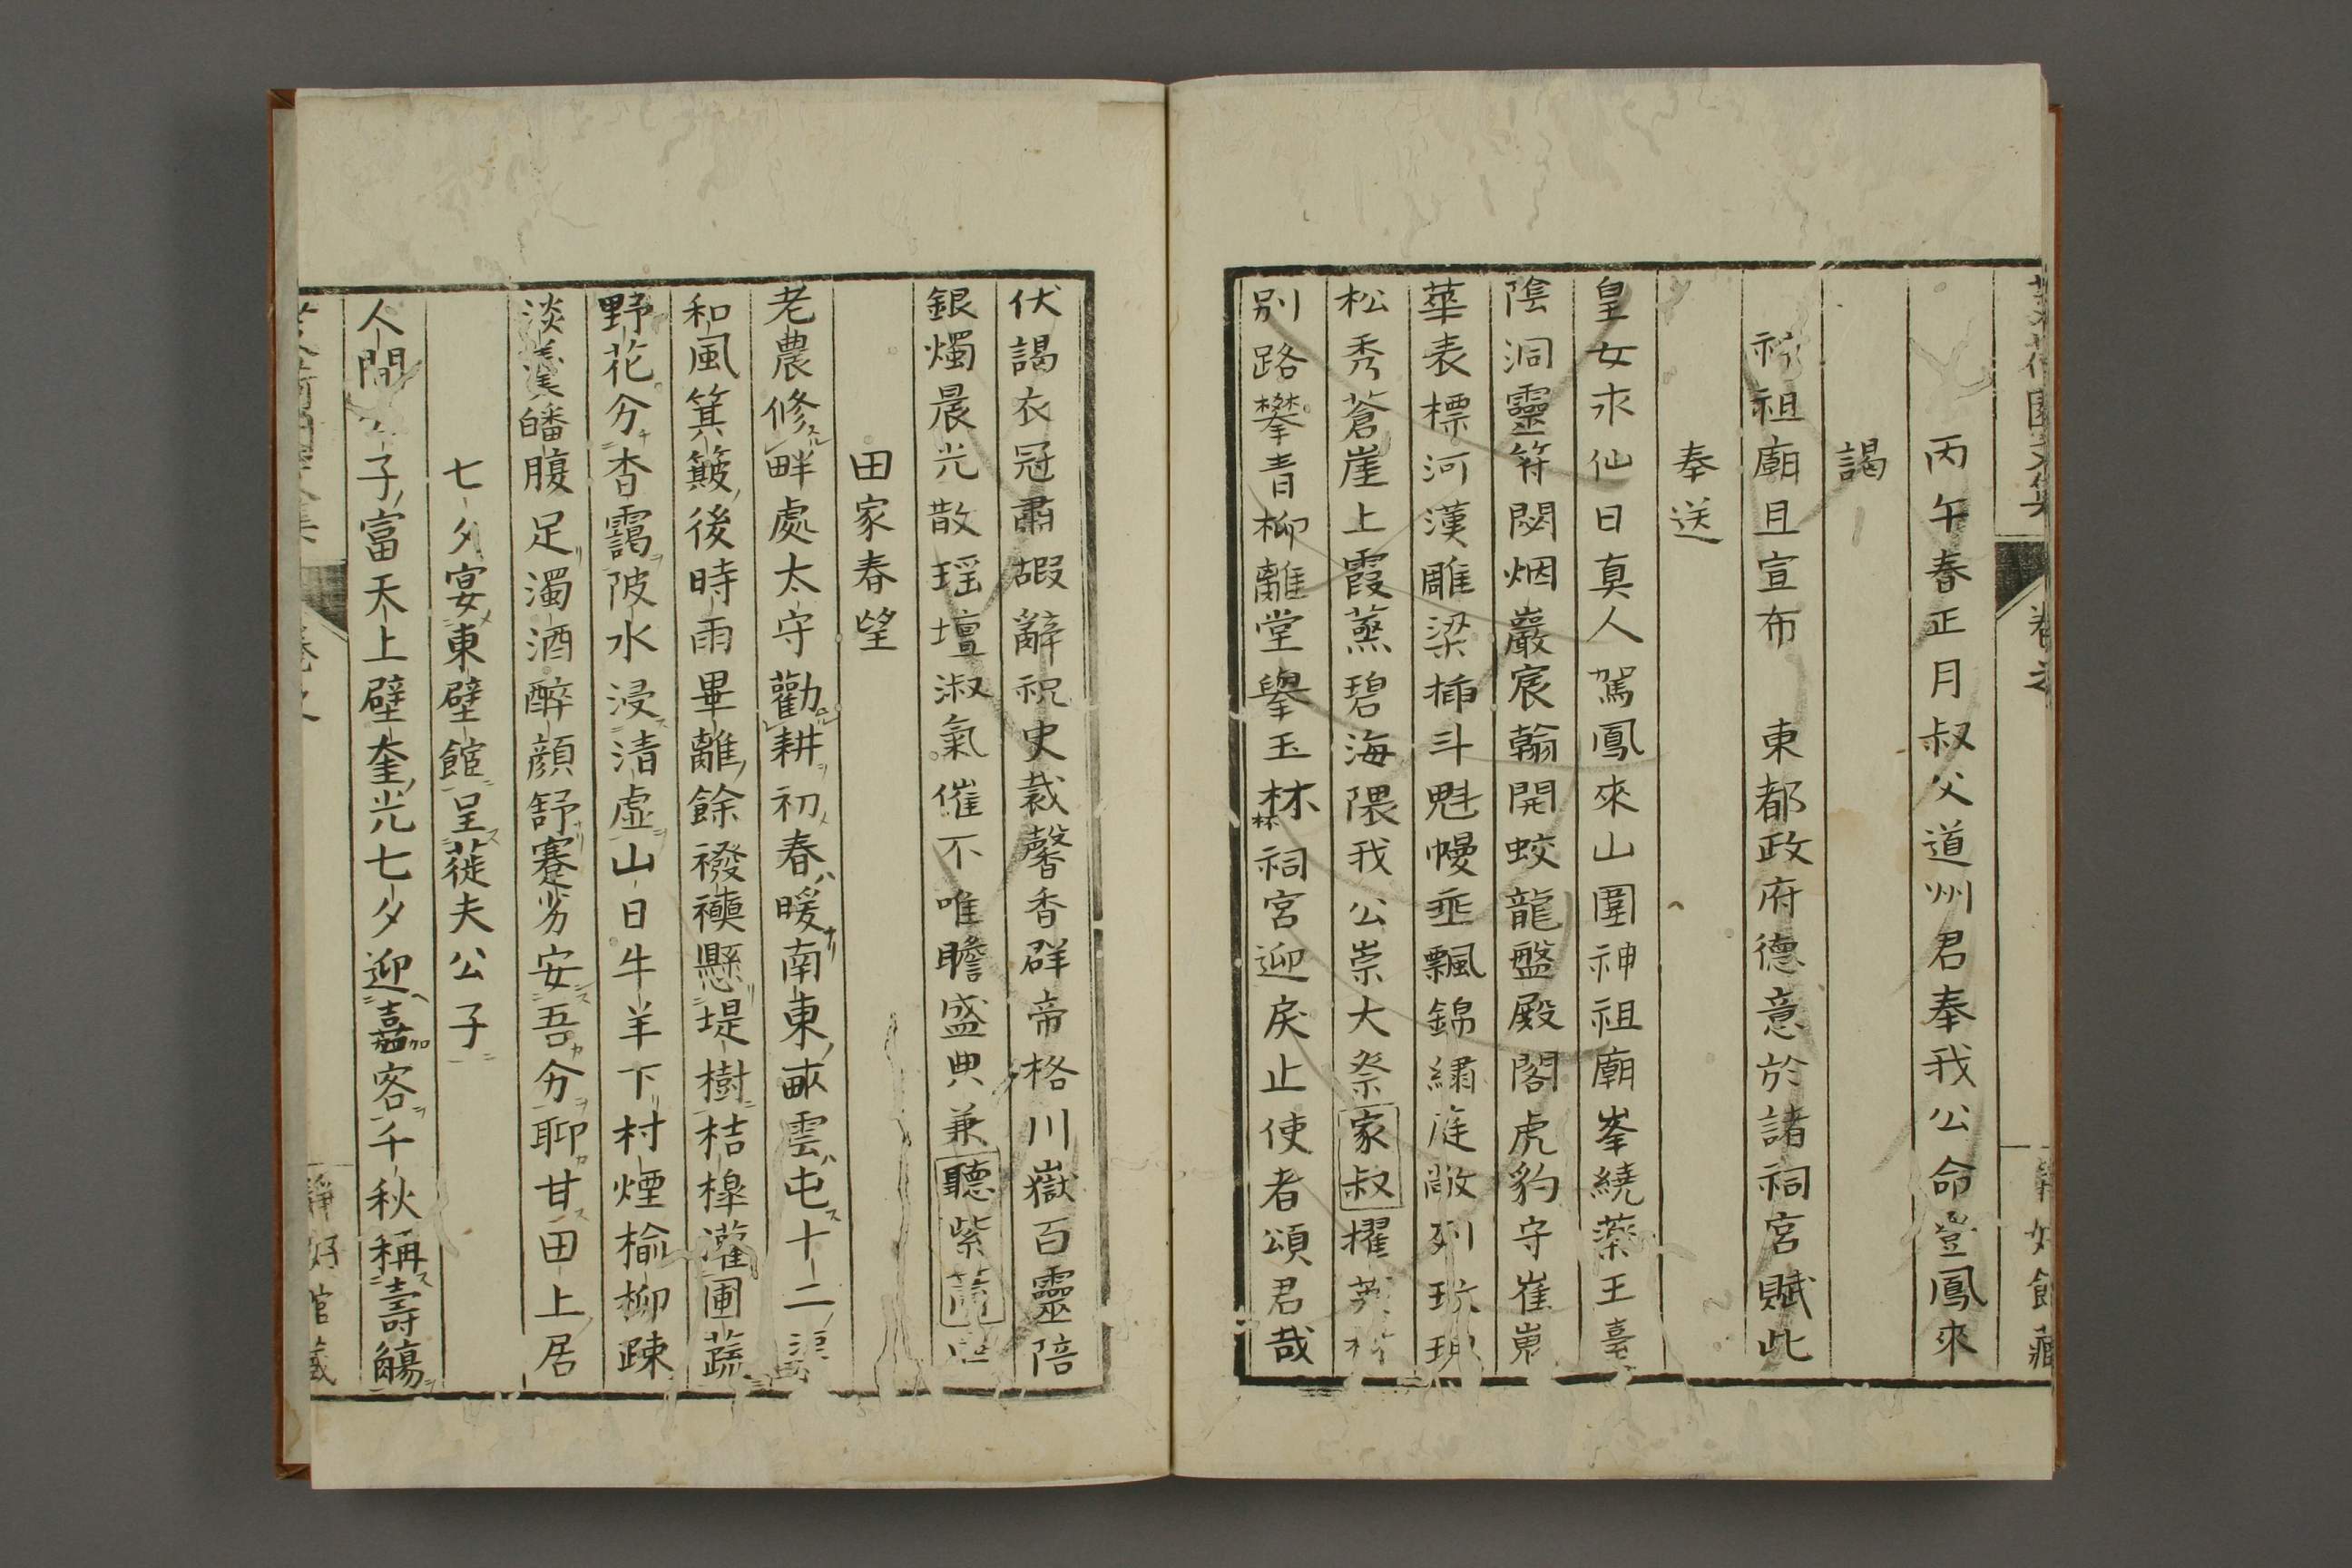 丙午春正月叔父道州君奉我公命登鳳來
謁
神祖廟且宣布　東都政府德意於諸祠宮賦此
奉送
皇女求仙日真人駕鳳來山圍神祖廟峯繞藥王臺
陰洞靈符閟烟巖宸翰開蛟龍盤殿閣虎豹守崔嵬
華表標河漢雕梁揷斗魁幔垂飄錦繡庭敞列玩
松秀蒼崖上霞蒸碧海隈我公崇大祭家叔擢
別路攀青柳離堂擧玉杯祠宮迎戾止使者頌君哉
伏謁衣冠肅嘏辭祝史裁馨香群帝格川嶽百靈陪
銀燭晨光散瑶壇淑氣催不唯瞻盛典兼聽紫簫
田家春望
老農修畔處太守勸耕初春暖南東畝雲屯十二渠
和風箕簸後時雨畢離餘襏襫懸堤樹桔槹灌圃蔬
野花分杳靄陂水浸清虛山日牛羊下村煙楡柳疎
淡羹皤腹足濁酒醉顔舒蹇劣安吾分聊甘田上居
七夕宴東壁館呈蓰夫公子
人間公子富天上壁奎光七夕迎嘉客千秋稱壽觴